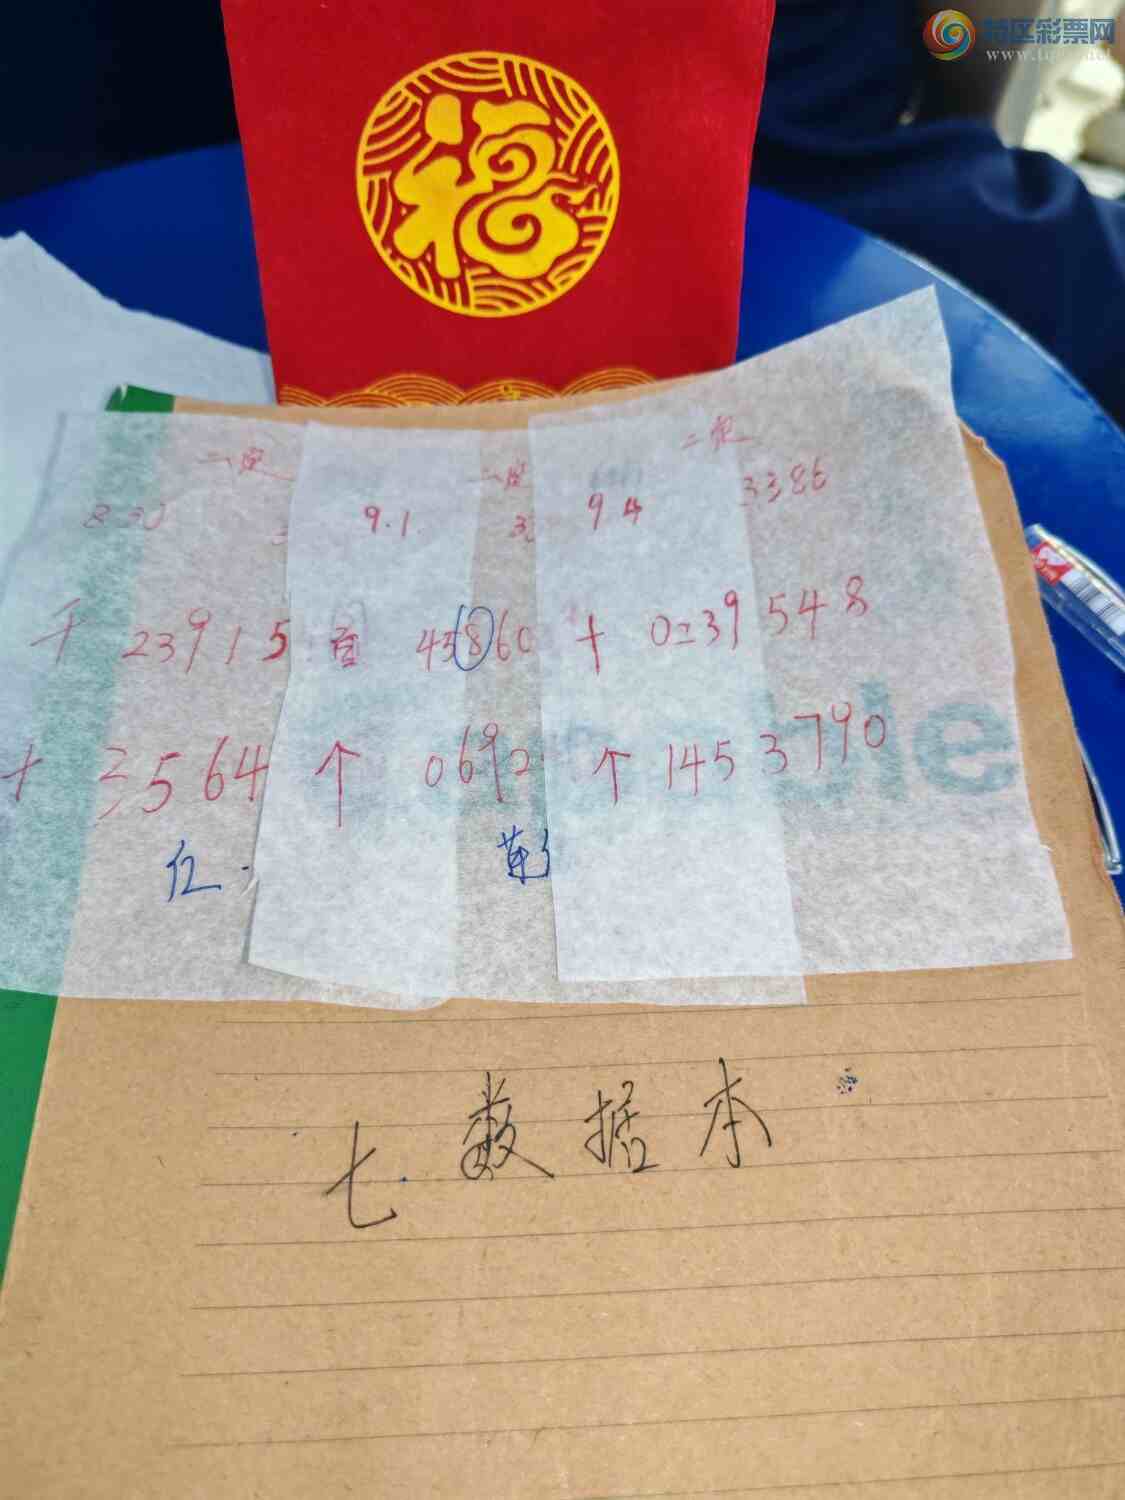 特区彩票网
福
二定 二定 二定
8.30 9.1. 9.4 3386
千 23915 百 45860 十 0239548
十 3564 个 0692 个 1453790
仁.
七.数据本